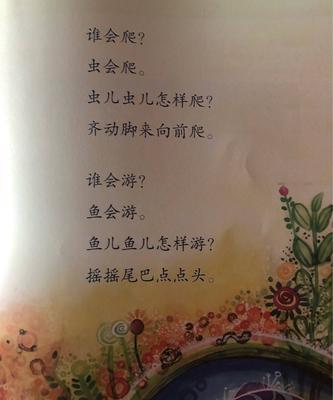 谁会爬?
虫会爬。
虫儿虫儿怎样爬?
齐动脚来向前爬。
谁会游?
鱼会游。
鱼儿鱼儿怎样游?
摇摇尾巴点点头。